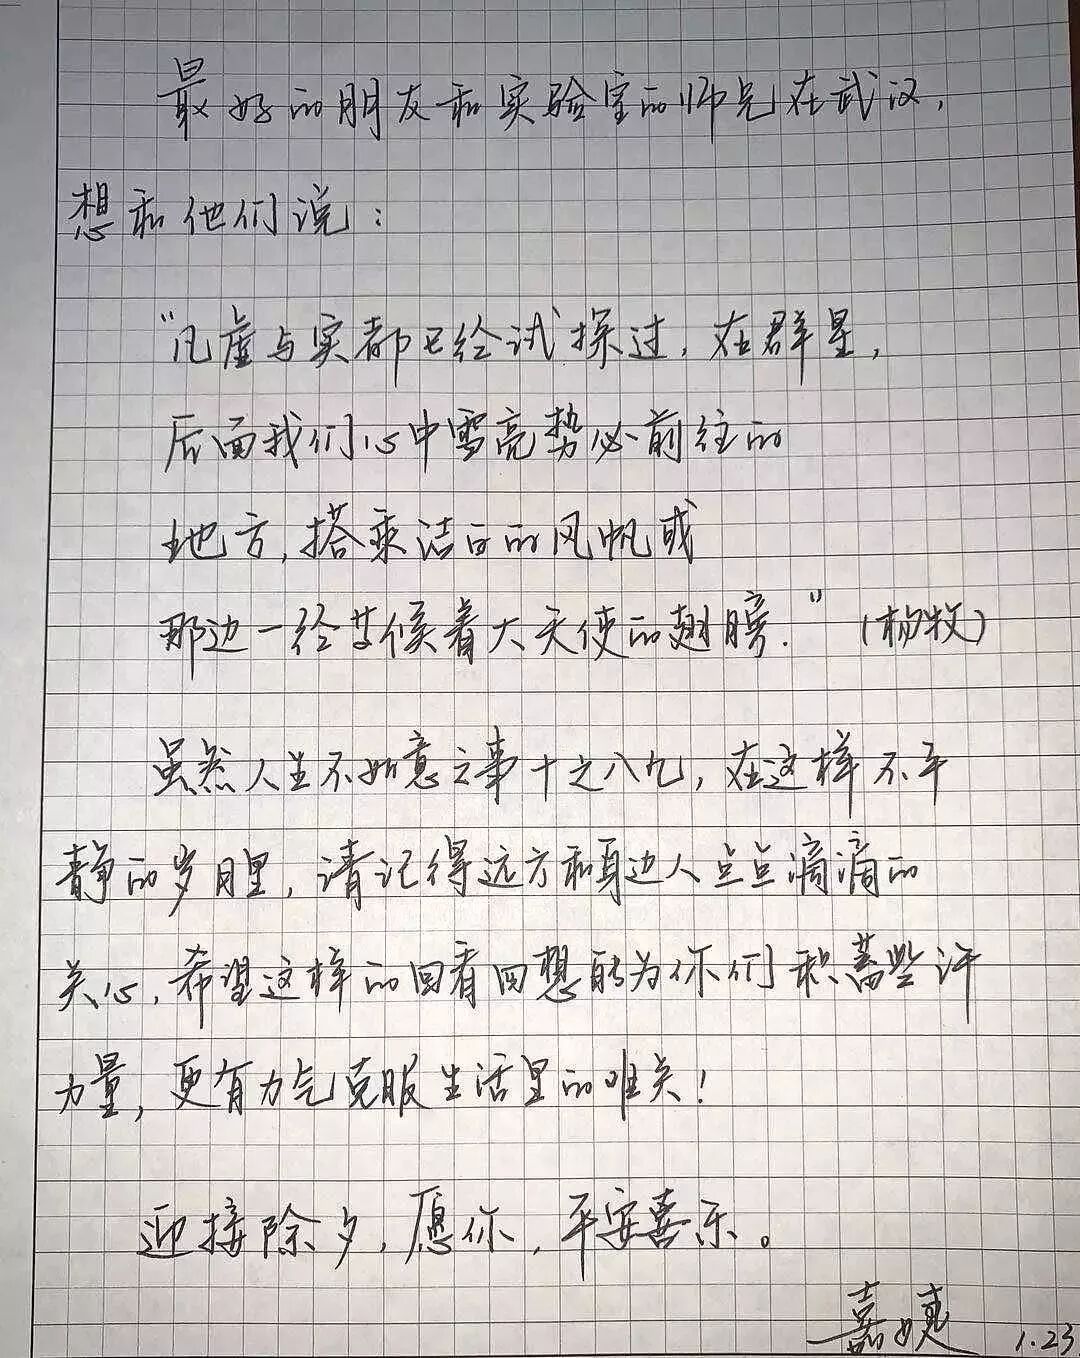 最好的朋友和实验室的师兄在武汉，
想和他们说：
“凡虚与实都已经试探过，在群星，
后面我们心中雪亮势必前往的
地方，搭乘洁白的风帆或
那边一经等候着大天使的翅膀.”（杨牧）
虽然人生不如意之事十之八九，在这样不平
静的岁月里，请记得远方和身边人点点滴滴的
关心，希望这样的回看回想能为你们积蓄些许
力量，更有力气克服生活里的难关！
迎接除夕，愿你，平安喜乐。
嘉婕 1.23